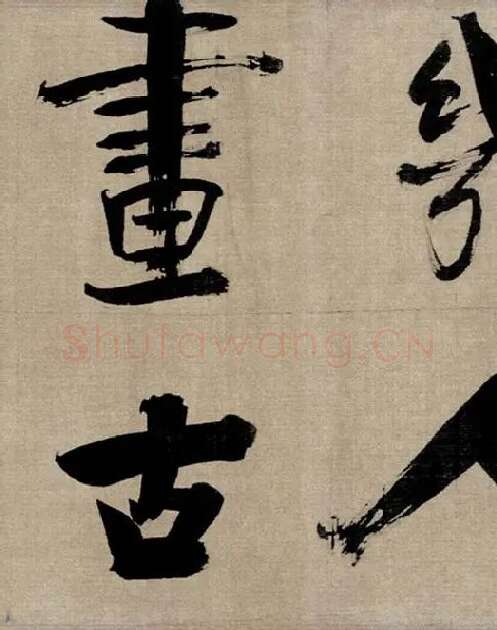 幾人
畫古
Shufawang.CN